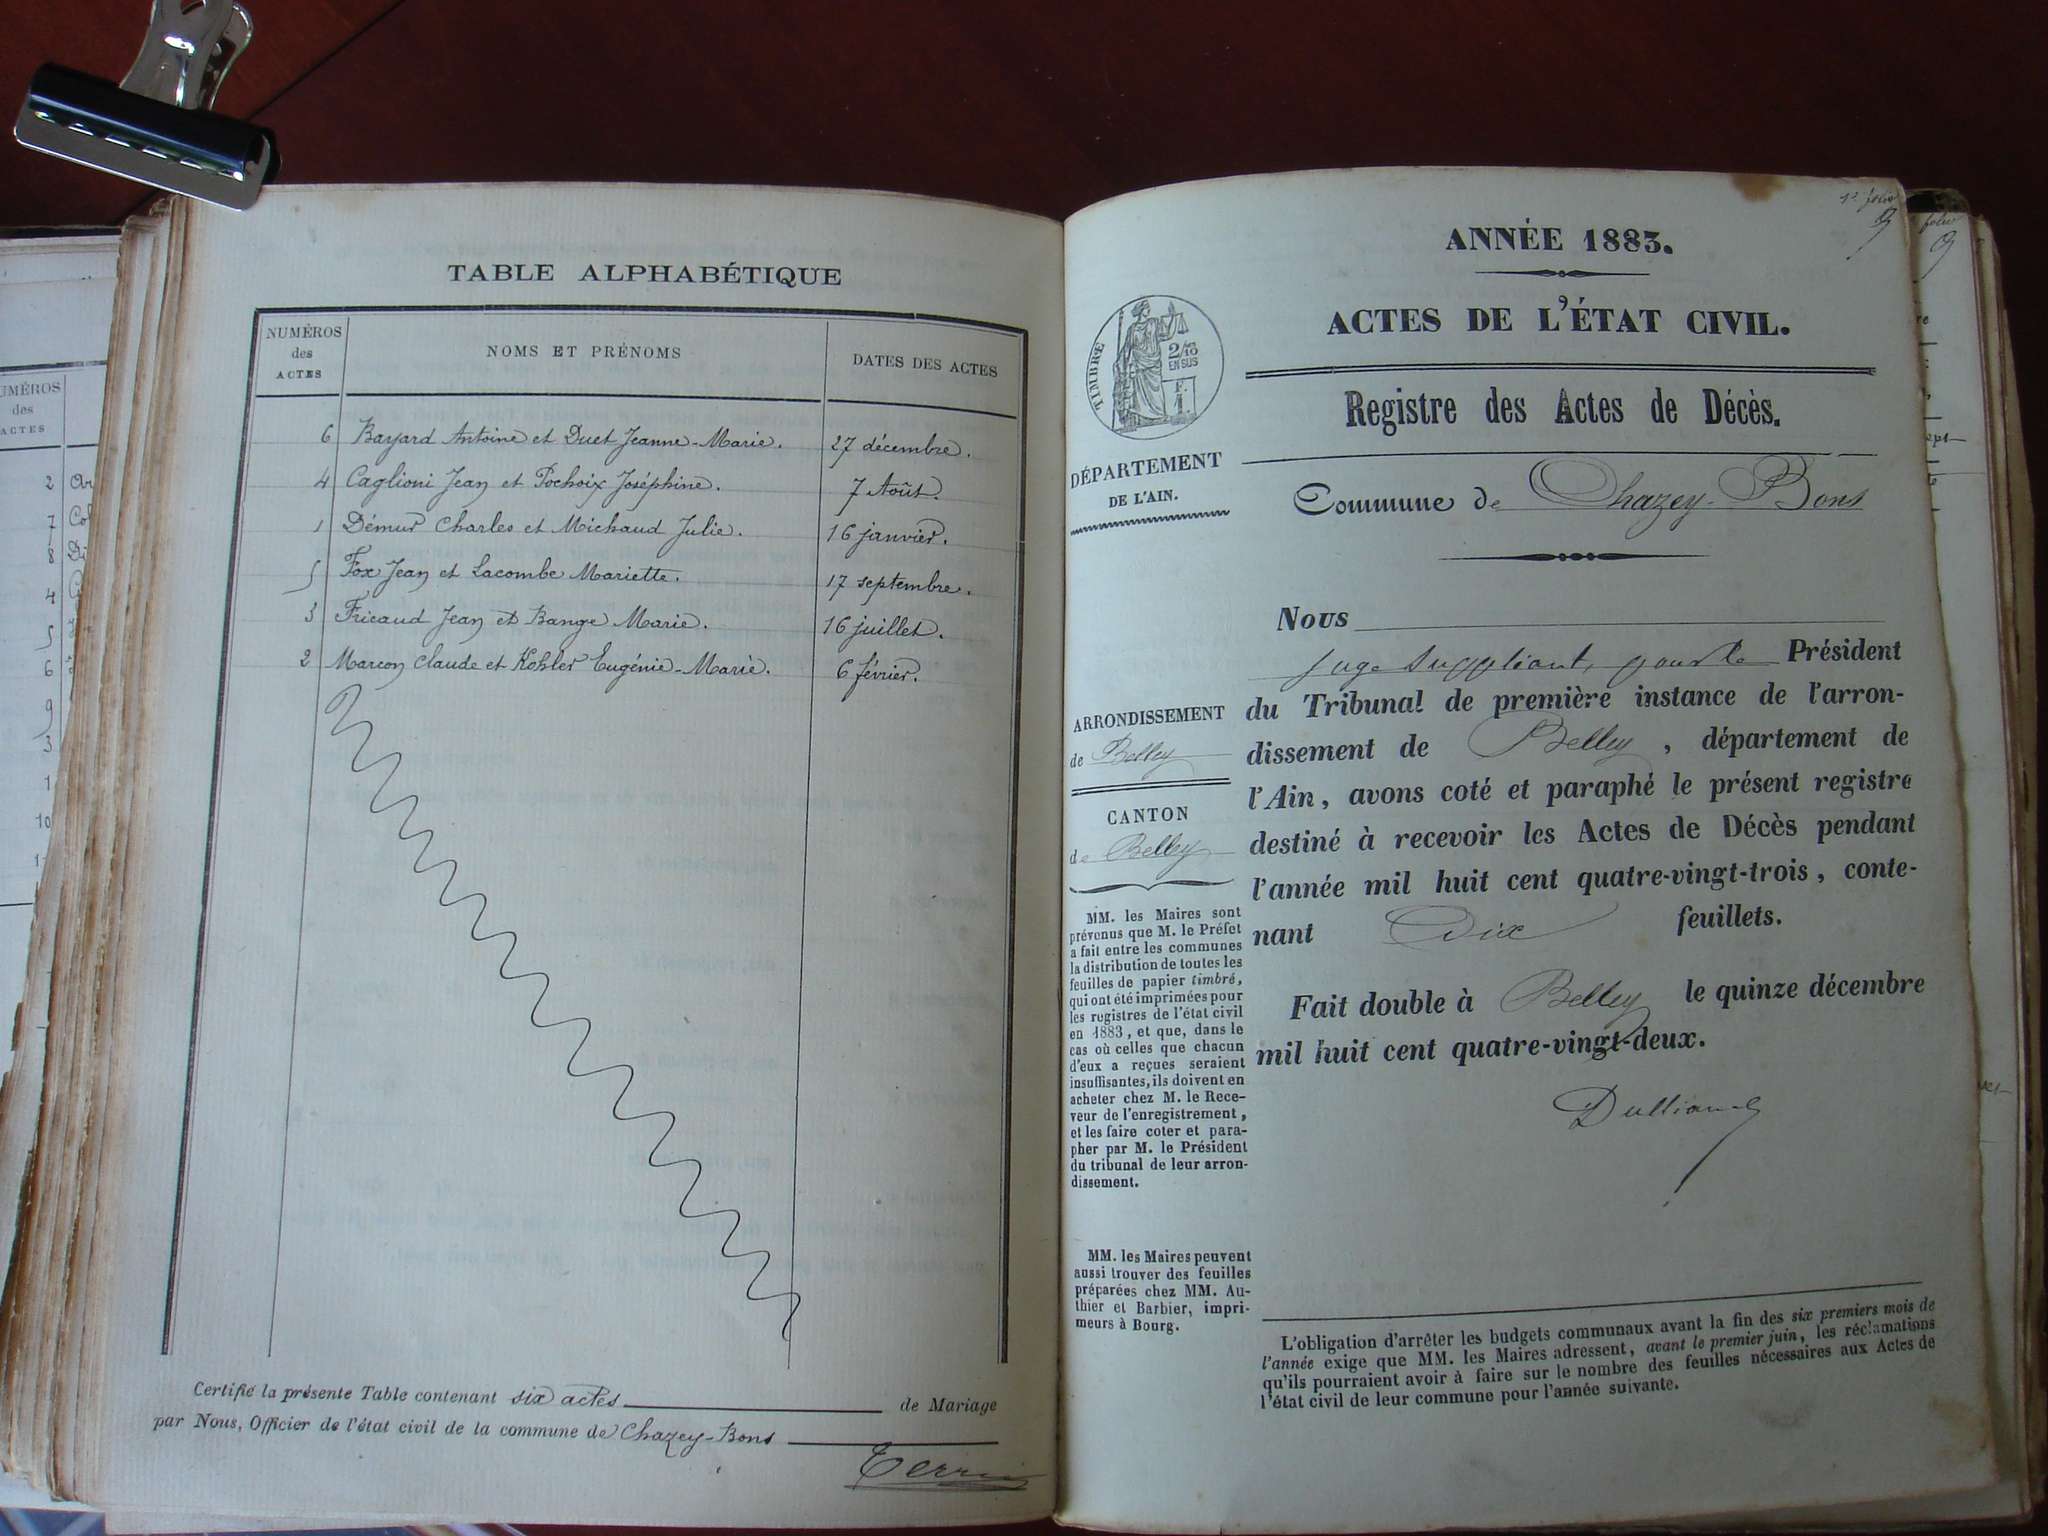 NUMÉROS
des
ACTES
2
7
8
4
5
6
9
3
1
10
TABLE ALPHABÉTIQUE
NUMÉROS des ACTES | NOMS ET PRÉNOMS | DATES DES ACTES
6 Bayard Antoine et Duet Jeanne-Marie. 27 décembre.
4 Caglioni Jean et Pochoix Joséphine. 7 Août.
1 Démur Charles et Michaud Julie. 16 janvier.
5 Fox Jean et Lacombe Mariette. 17 septembre.
3 Fricaud Jean et Bange Marie. 16 juillet.
2 Marcon Claude et Kohler Eugénie-Marie. 6 février.
Certifié la présente Table contenant six actes de Mariage
par Nous, Officier de l'état civil de la commune de Chazey-Bons
1er folio
ANNÉE 1883.
ACTES DE L'ÉTAT CIVIL.
TIMBRE
2/10
EN SUS
F.
1.
Registre des Actes de Décès.
DÉPARTEMENT
DE L'AIN.
Commune de Chazey-Bons
Nous
juge suppléant, pour le Président
du Tribunal de première instance de l'arron-
dissement de Belley, département de
l'Ain, avons coté et paraphé le présent registre
destiné à recevoir les Actes de Décès pendant
l'année mil huit cent quatre-vingt-trois, conte-
nant Dix feuillets.
Fait double à Belley le quinze décembre
mil huit cent quatre-vingt-deux.
ARRONDISSEMENT
de Belley
CANTON
de Belley
MM. les Maires sont
prévenus que M. le Préfet
a fait entre les communes
la distribution de toutes les
feuilles de papier timbré,
qui ont été imprimées pour
les registres de l'état civil
en 1883, et que, dans le
cas où celles que chacun
d'eux a reçues seraient
insuffisantes, ils doivent en
acheter chez M. le Rece-
veur de l'enregistrement,
et les faire coter et para-
pher par M. le Président
du tribunal de leur arron-
dissement.
MM. les Maires peuvent
aussi trouver des feuilles
préparées chez MM. Au-
thier et Barbier, impri-
meurs à Bourg.
L'obligation d'arrêter les budgets communaux avant la fin des six premiers mois de
l'année exige que MM. les Maires adressent, avant le premier juin, les réclamations
qu'ils pourraient avoir à faire sur le nombre des feuilles nécessaires aux Actes de
l'état civil de leur commune pour l'année suivante.
folio